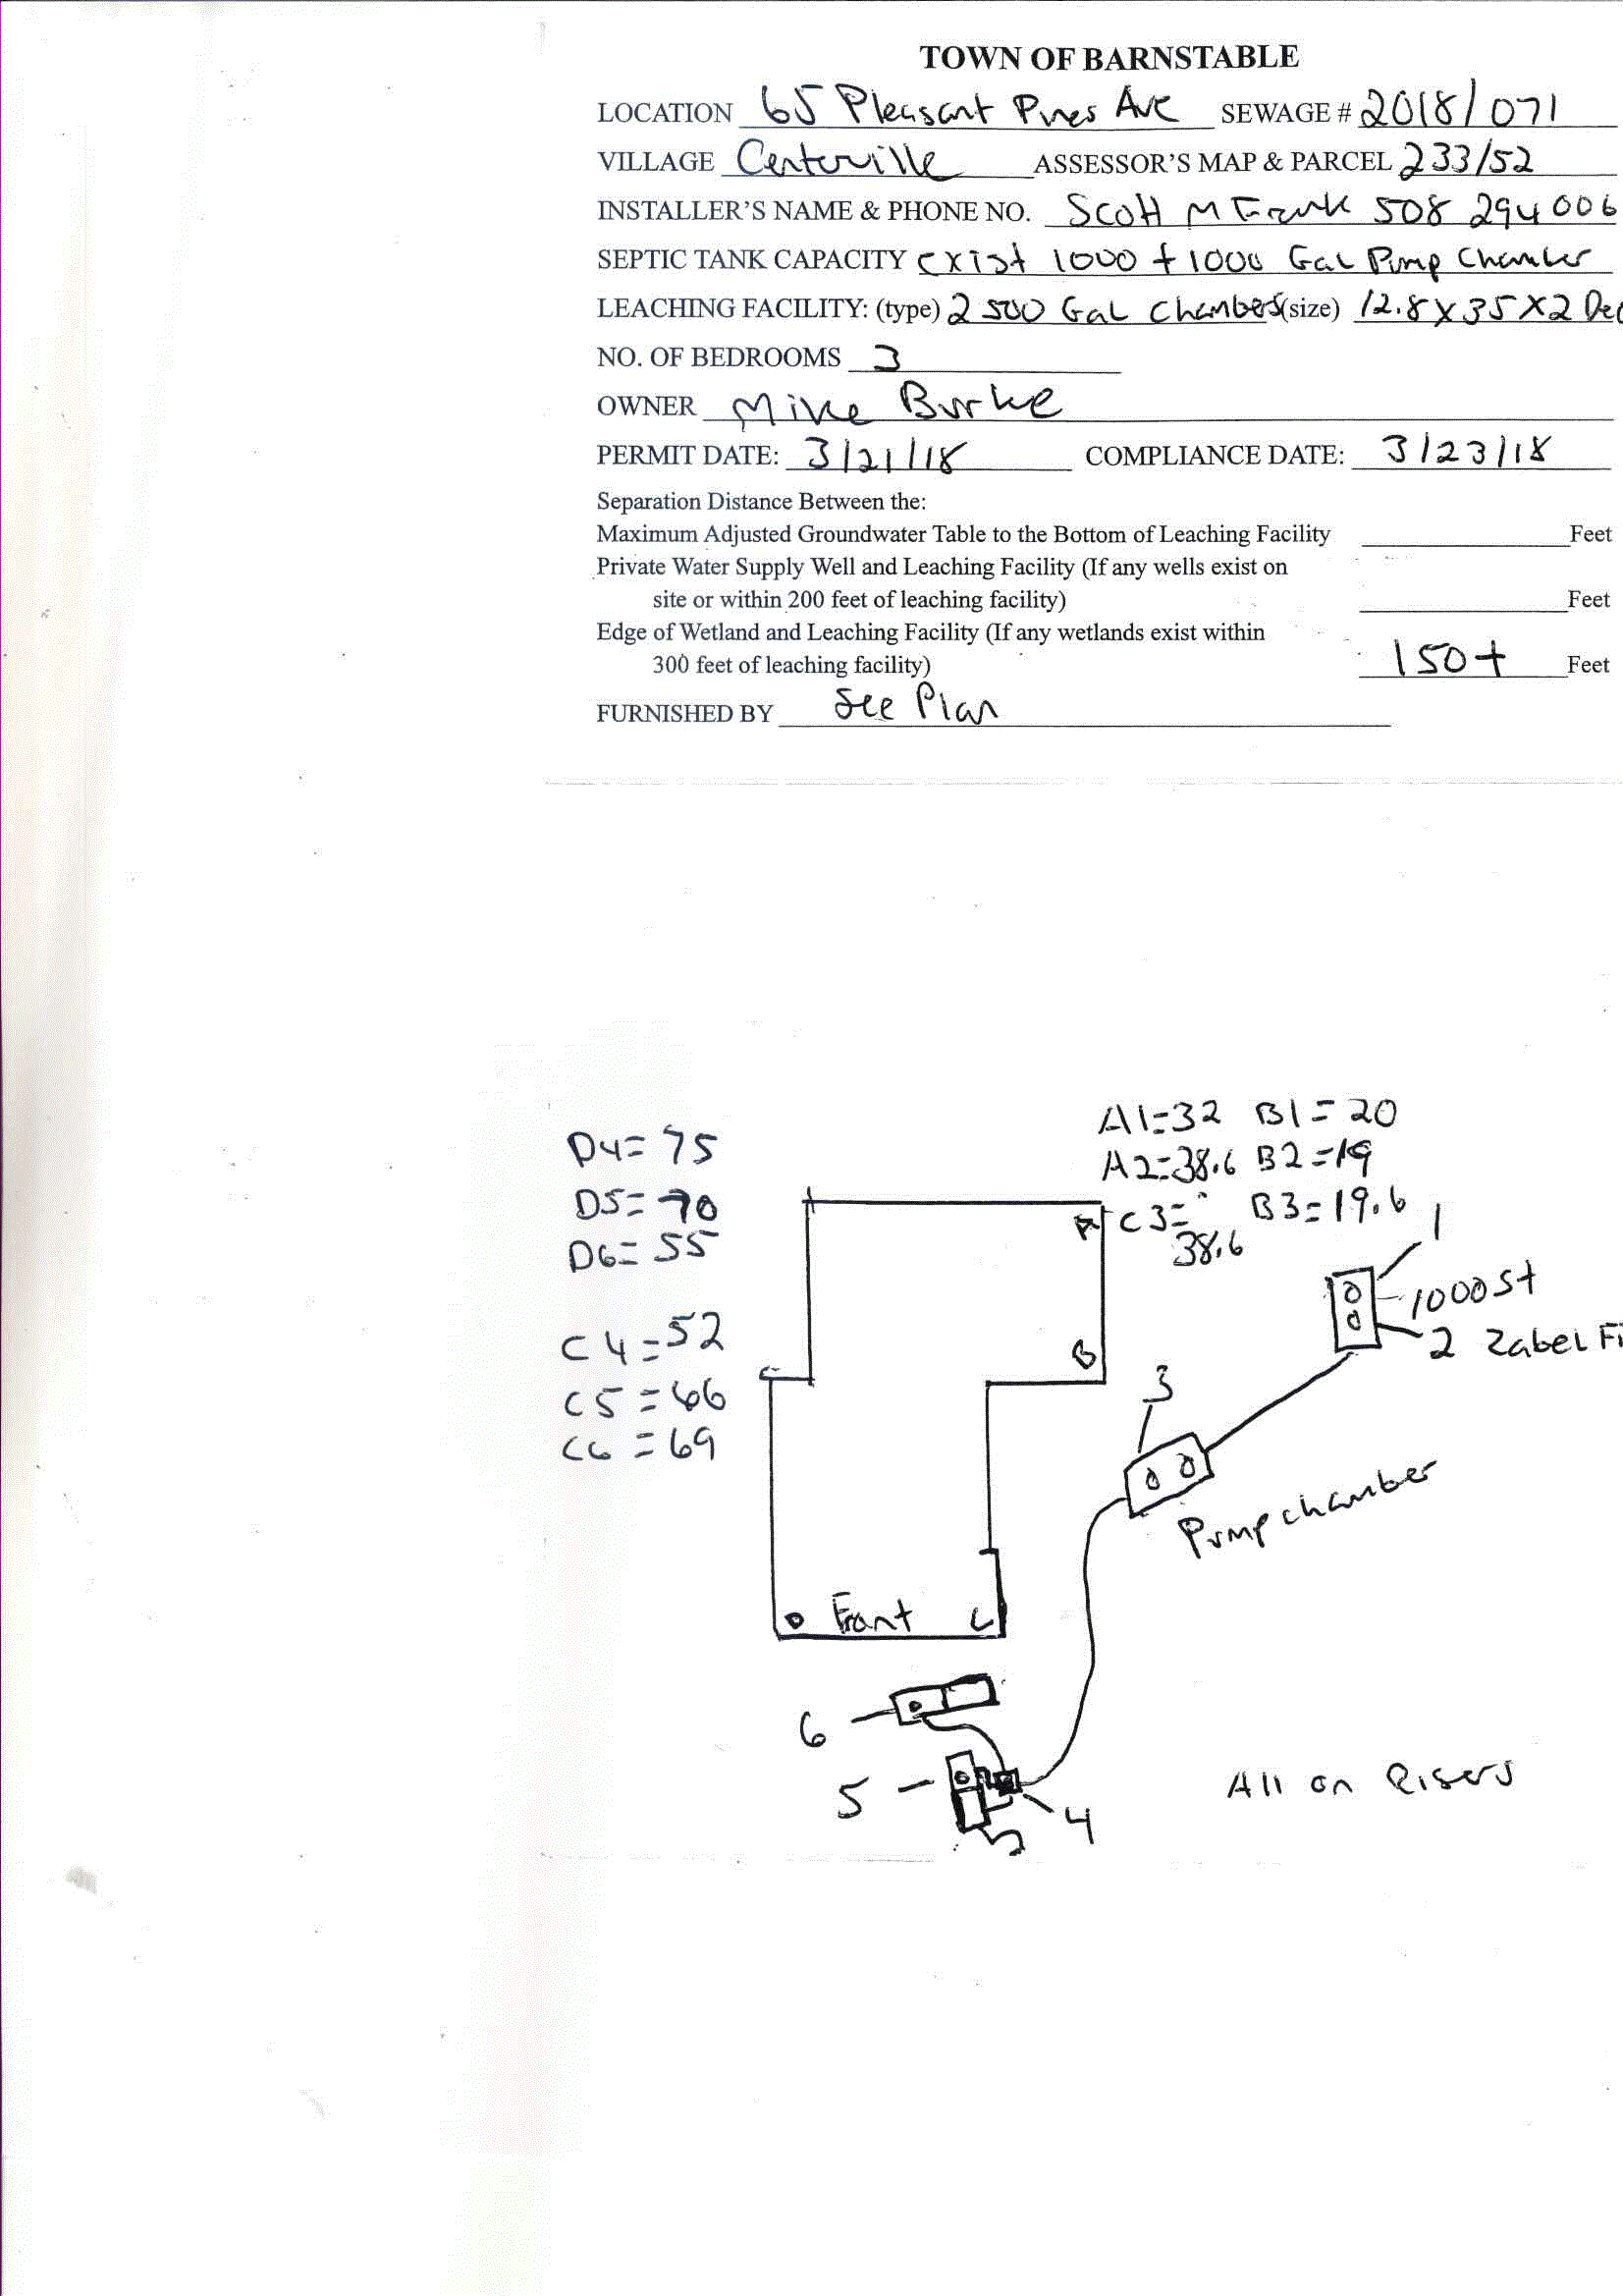 TOWN OF BARNSTABLE
LOCATION 65 Pleasant Pines Ave SEWAGE # 2018/071
VILLAGE Centerville ASSESSOR'S MAP & PARCEL 233/52
INSTALLER'S NAME & PHONE NO. Scott M Frank 508 294 006
SEPTIC TANK CAPACITY exist 1000 + 1000 Gal Pump Chamber
LEACHING FACILITY: (type) 2 500 Gal Chambers (size) 12.8 x 35 x 2 Dee
NO. OF BEDROOMS 3
OWNER Mike Burke
PERMIT DATE: 3/21/18 COMPLIANCE DATE: 3/23/18
Separation Distance Between the:
Maximum Adjusted Groundwater Table to the Bottom of Leaching Facility Feet
Private Water Supply Well and Leaching Facility (If any wells exist on
site or within 200 feet of leaching facility) Feet
Edge of Wetland and Leaching Facility (If any wetlands exist within
300 feet of leaching facility) 150+ Feet
FURNISHED BY See Plan
A1=32 B1=20
D4=75
A2=38.6 B2=19
D5=70
A C3= B3=19.6 1
38.6
D6=55
1000 St
C4=52
2 Zabel Fi
B
3
C5=66
C6=69
Pump chamber
D Front C
6
5
4
All on Risers